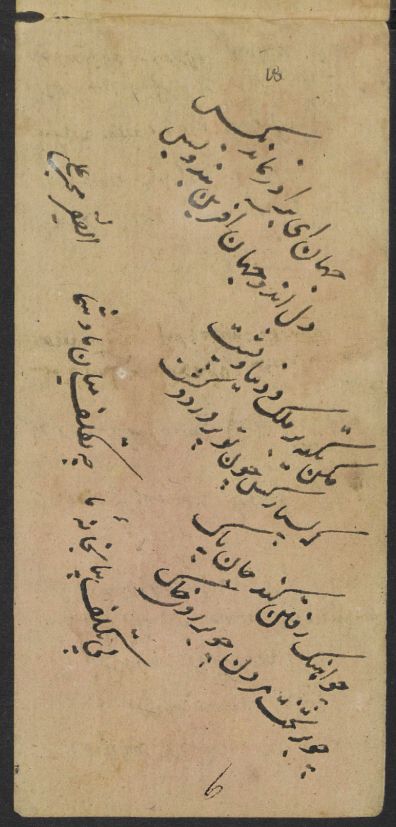 جهان ای برادر نماند بکس
دل اندر جهان افرین بند و بس
مکن تکیه بر ملک و دنیا و پشت
که بسیار کس چون تو پرورد و کشت
چو اهنک رفتن کند جان پاک
چه بر تخت مردن چه بر روی خاک
بی تکلف بیا بخانهٔ ما چه تکلف میان ما و شما
الفقیر محمد علی